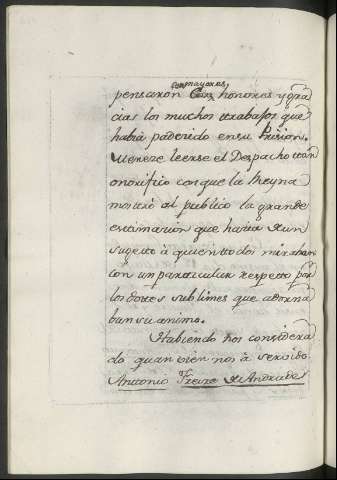 con mayores
pensaron Con honores y gra
cias los muchos trabajos que
había padecido en su Prision.
Merece leerse el Despacho tan
onorifico con que la Reyna
mostró al publico la grande
estimacion que hacia de un
sugeto à quien todos miraban
con un particular respecto por
los dotes sublimes que adorna
ban su animo.
Habiendo nos considera
do quan bien nos à servido
Antonio Freire de Andrade